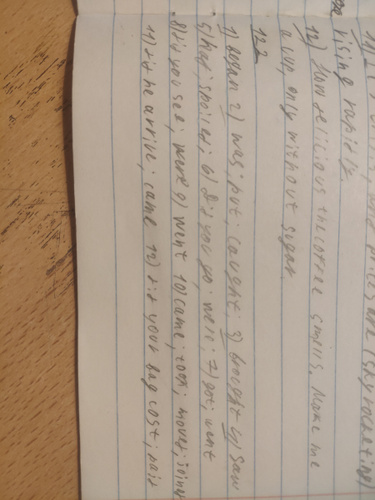 rising rapidly
12) How delicious the coffee smells. Make me
a cup, only without sugar.
12.2
1) began 2) was; put; caught; 3) brought 4) saw
5) had; spoiled; 6) Did you go; were; 7) got; went
8) did you see; were 9) went 10) came; took; moved; joined
11) did he arrive; came 12) did your bag cost; paid